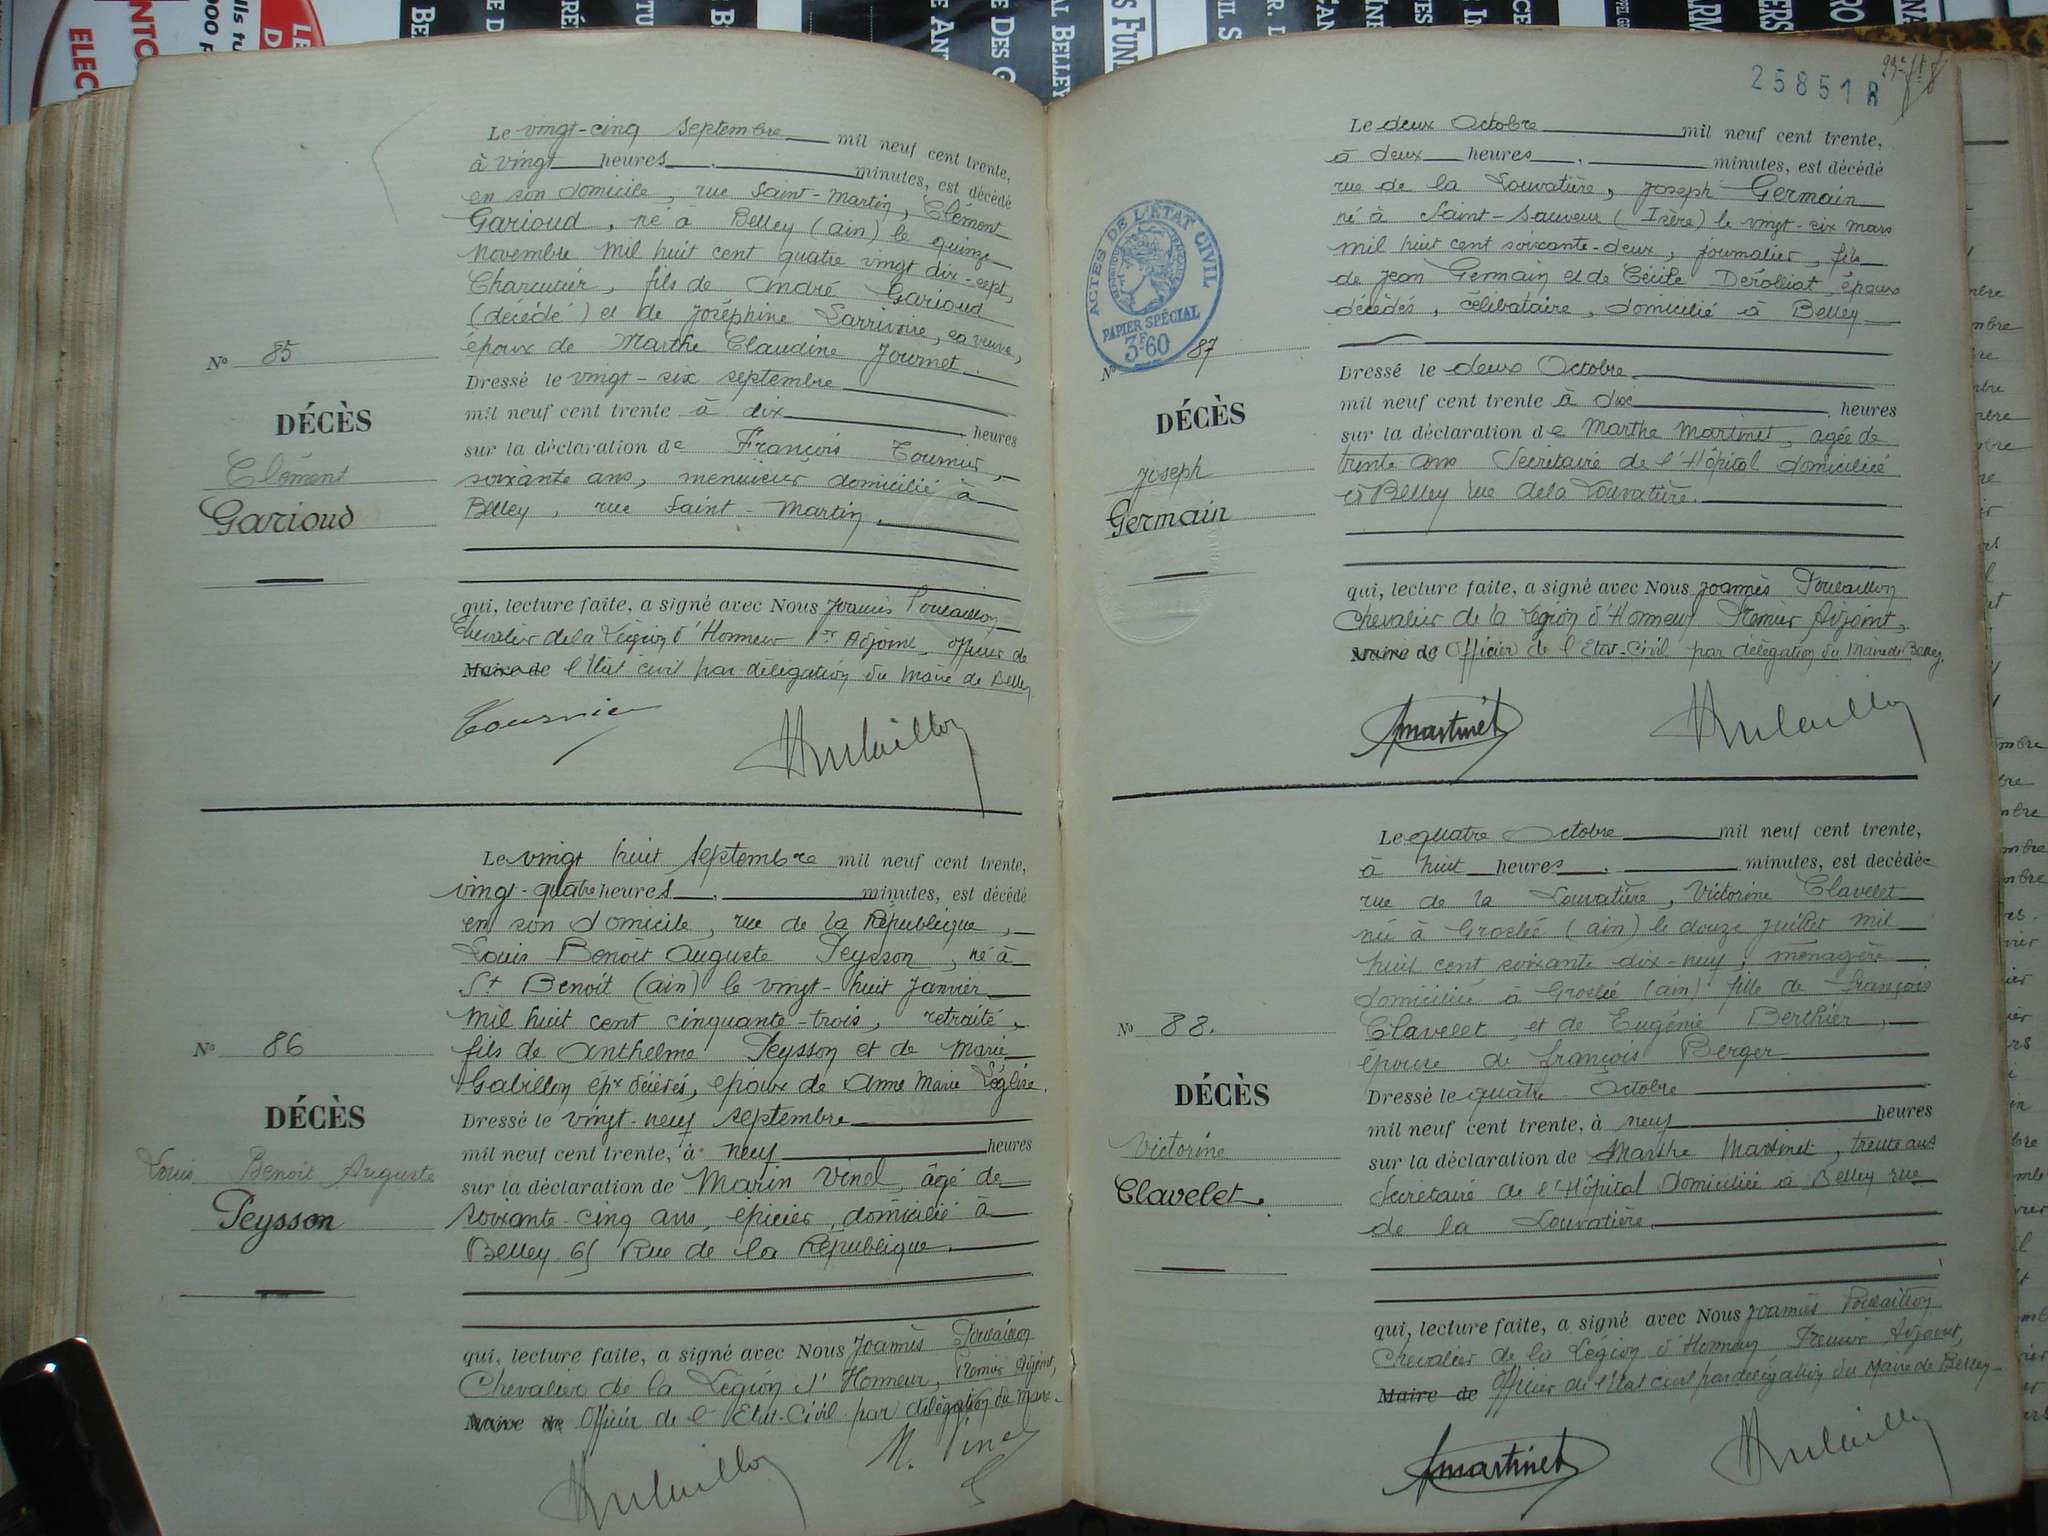 Le vingt-cinq septembre mil neuf cent trente,
à vingt heures, minutes, est décédé
en son domicile, rue Saint-Martin, Clément
Garioud, né à Belley (ain) le quinze
Novembre mil huit cent quatre vingt dix-sept,
Charcutier, fils de André Garioud
(décédé) et de Joséphine Larrivoire, sa veuve,
époux de Marthe Claudine Journet.
No 85
DÉCÈS
Clément
Garioud
Dressé le vingt-six septembre
mil neuf cent trente à dix heures
sur la déclaration de François Tournier,
soixante ans, menuisier domicilié à
Belley, rue Saint-Martin.
qui, lecture faite, a signé avec Nous Joamès Poulaillon
Chevalier de la Légion d'Honneur 1er Adjoint, officier de
Maire de l'Etat civil par délégation du Maire de Belley
Tournier
Poulaillon
Le vingt huit septembre mil neuf cent trente,
vingt-quatre heures, minutes, est décédé
en son domicile, rue de la République,
Louis Benoît Auguste Peysson, né à
St Benoit (ain) le vingt-huit Janvier
mil huit cent cinquante-trois, retraité,
fils de Anthelme Peysson et de Marie
Gabillon épx décédés, époux de Anne Marie Léglise.
No 86
DÉCÈS
Louis Benoit Auguste
Peysson
Dressé le vingt-neuf septembre
mil neuf cent trente, à neuf heures
sur la déclaration de Marin Vinel, âgé de
soixante-cinq ans, épicier, domicilié à
Belley 65 Rue de la République.
qui, lecture faite, a signé avec Nous Joamès Poulaillon
Chevalier de la Légion d'Honneur, Premier Adjoint,
Maire de Officier de l'Etat-Civil par délégation du Maire.
Poulaillon
M. Vinel
25851 R
Le deux Octobre mil neuf cent trente,
à deux heures, minutes, est décédé
rue de la Louvatière, Joseph Germain
né à Saint-Sauveur (Isère) le vingt-six mars
mil huit cent soixante-deux, journalier, fils
de Jean Germain et de Cécile Derolliat, époux
décédés, célibataire, domicilié à Belley
ACTES DE L'ÉTAT CIVIL
PAPIER SPÉCIAL
3F60
No 87
DÉCÈS
Joseph
Germain
Dressé le deux Octobre
mil neuf cent trente à dix heures
sur la déclaration de Marthe Martinet, agée de
trente ans Secrétaire de l'Hôpital domiciliée
à Belley rue de la Louvatière.
qui, lecture faite, a signé avec Nous Joamès Poulaillon
Chevalier de la Légion d'Honneur Premier Adjoint,
Maire de Officier de l'Etat-Civil par délégation du Maire de Belley.
Martinet
Poulaillon
Le quatre Octobre mil neuf cent trente,
à huit heures, minutes, est decédée
rue de la Louvatière, Victorine Clavelet
née à Groslée (ain) le douze Juillet mil
huit cent soixante dix-neuf, ménagère
domiciliée à Groslée (ain) fille de François
Clavelet, et de Eugénie Berthier,
épouse de François Berger
No 88.
DÉCÈS
Victorine
Clavelet.
Dressé le quatre Octobre
mil neuf cent trente, à neuf heures
sur la déclaration de Marthe Martinet, trente ans
Secrétaire de l'Hôpital domiciliée à Belley rue
de la Louvatière.
qui, lecture faite, a signé avec Nous Joamès Poulaillon
Chevalier de la Légion d'Honneur Premier Adjoint,
Maire de Officier de l'Etat civil par délégation du Maire de Belley
Martinet
Poulaillon